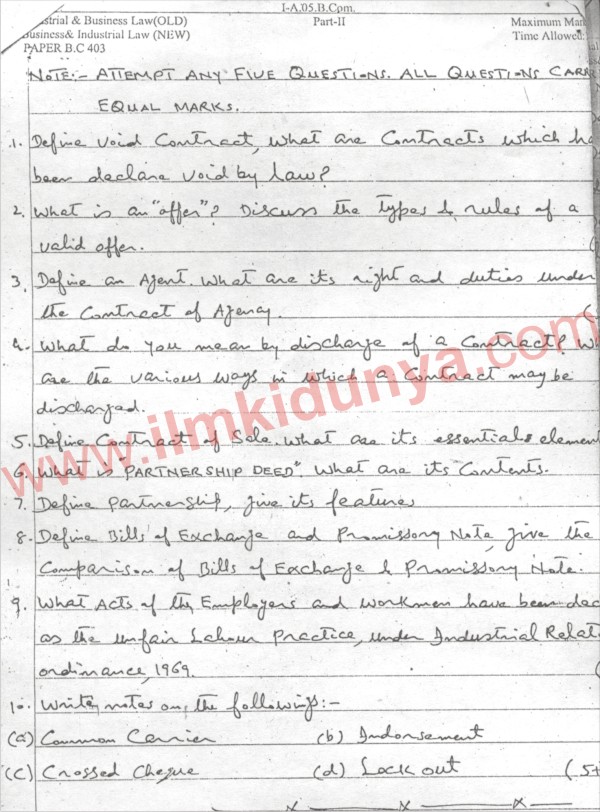 I-A.05.B.Com.
strial & Business Law(OLD) Part-II Maximum Mar
Business& Industrial Law (NEW) Time Allowed:
PAPER B.C 403
NOTE:- ATTEMPT ANY FIVE QUESTIONS. ALL QUESTIONS CARR
EQUAL MARKS.
1. Define void Contract, what are Contracts which ha
been declare void by Law?
2. What is an "offer"? Discuss the types & rules of a
valid offer.
3. Define an Agent. What are its right and duties under
the Contract of Agency.
4. What do you mean by discharge of a Contract? Wh
are the various ways in which a Contract may be
discharged.
5. Define Contract of Sale. What are its essentials element
6. What is PARTNERSHIP DEED". What are its Contents.
7. Define partnership, give its features
8. Define Bills of Exchange and Promissory Note, give the
Comparison of Bills of Exchange & Promissory Note.
9. What Acts of the Employers and workmen have been dec
as the unfair Labour Practice, under Industrial Relat
ordinance, 1969.
10. Write notes on, the followings:-
(a) Common Carrier (b) Indorsement
(c) Crossed Cheque (d) Lock out (5+
www.ilmkidunya.com